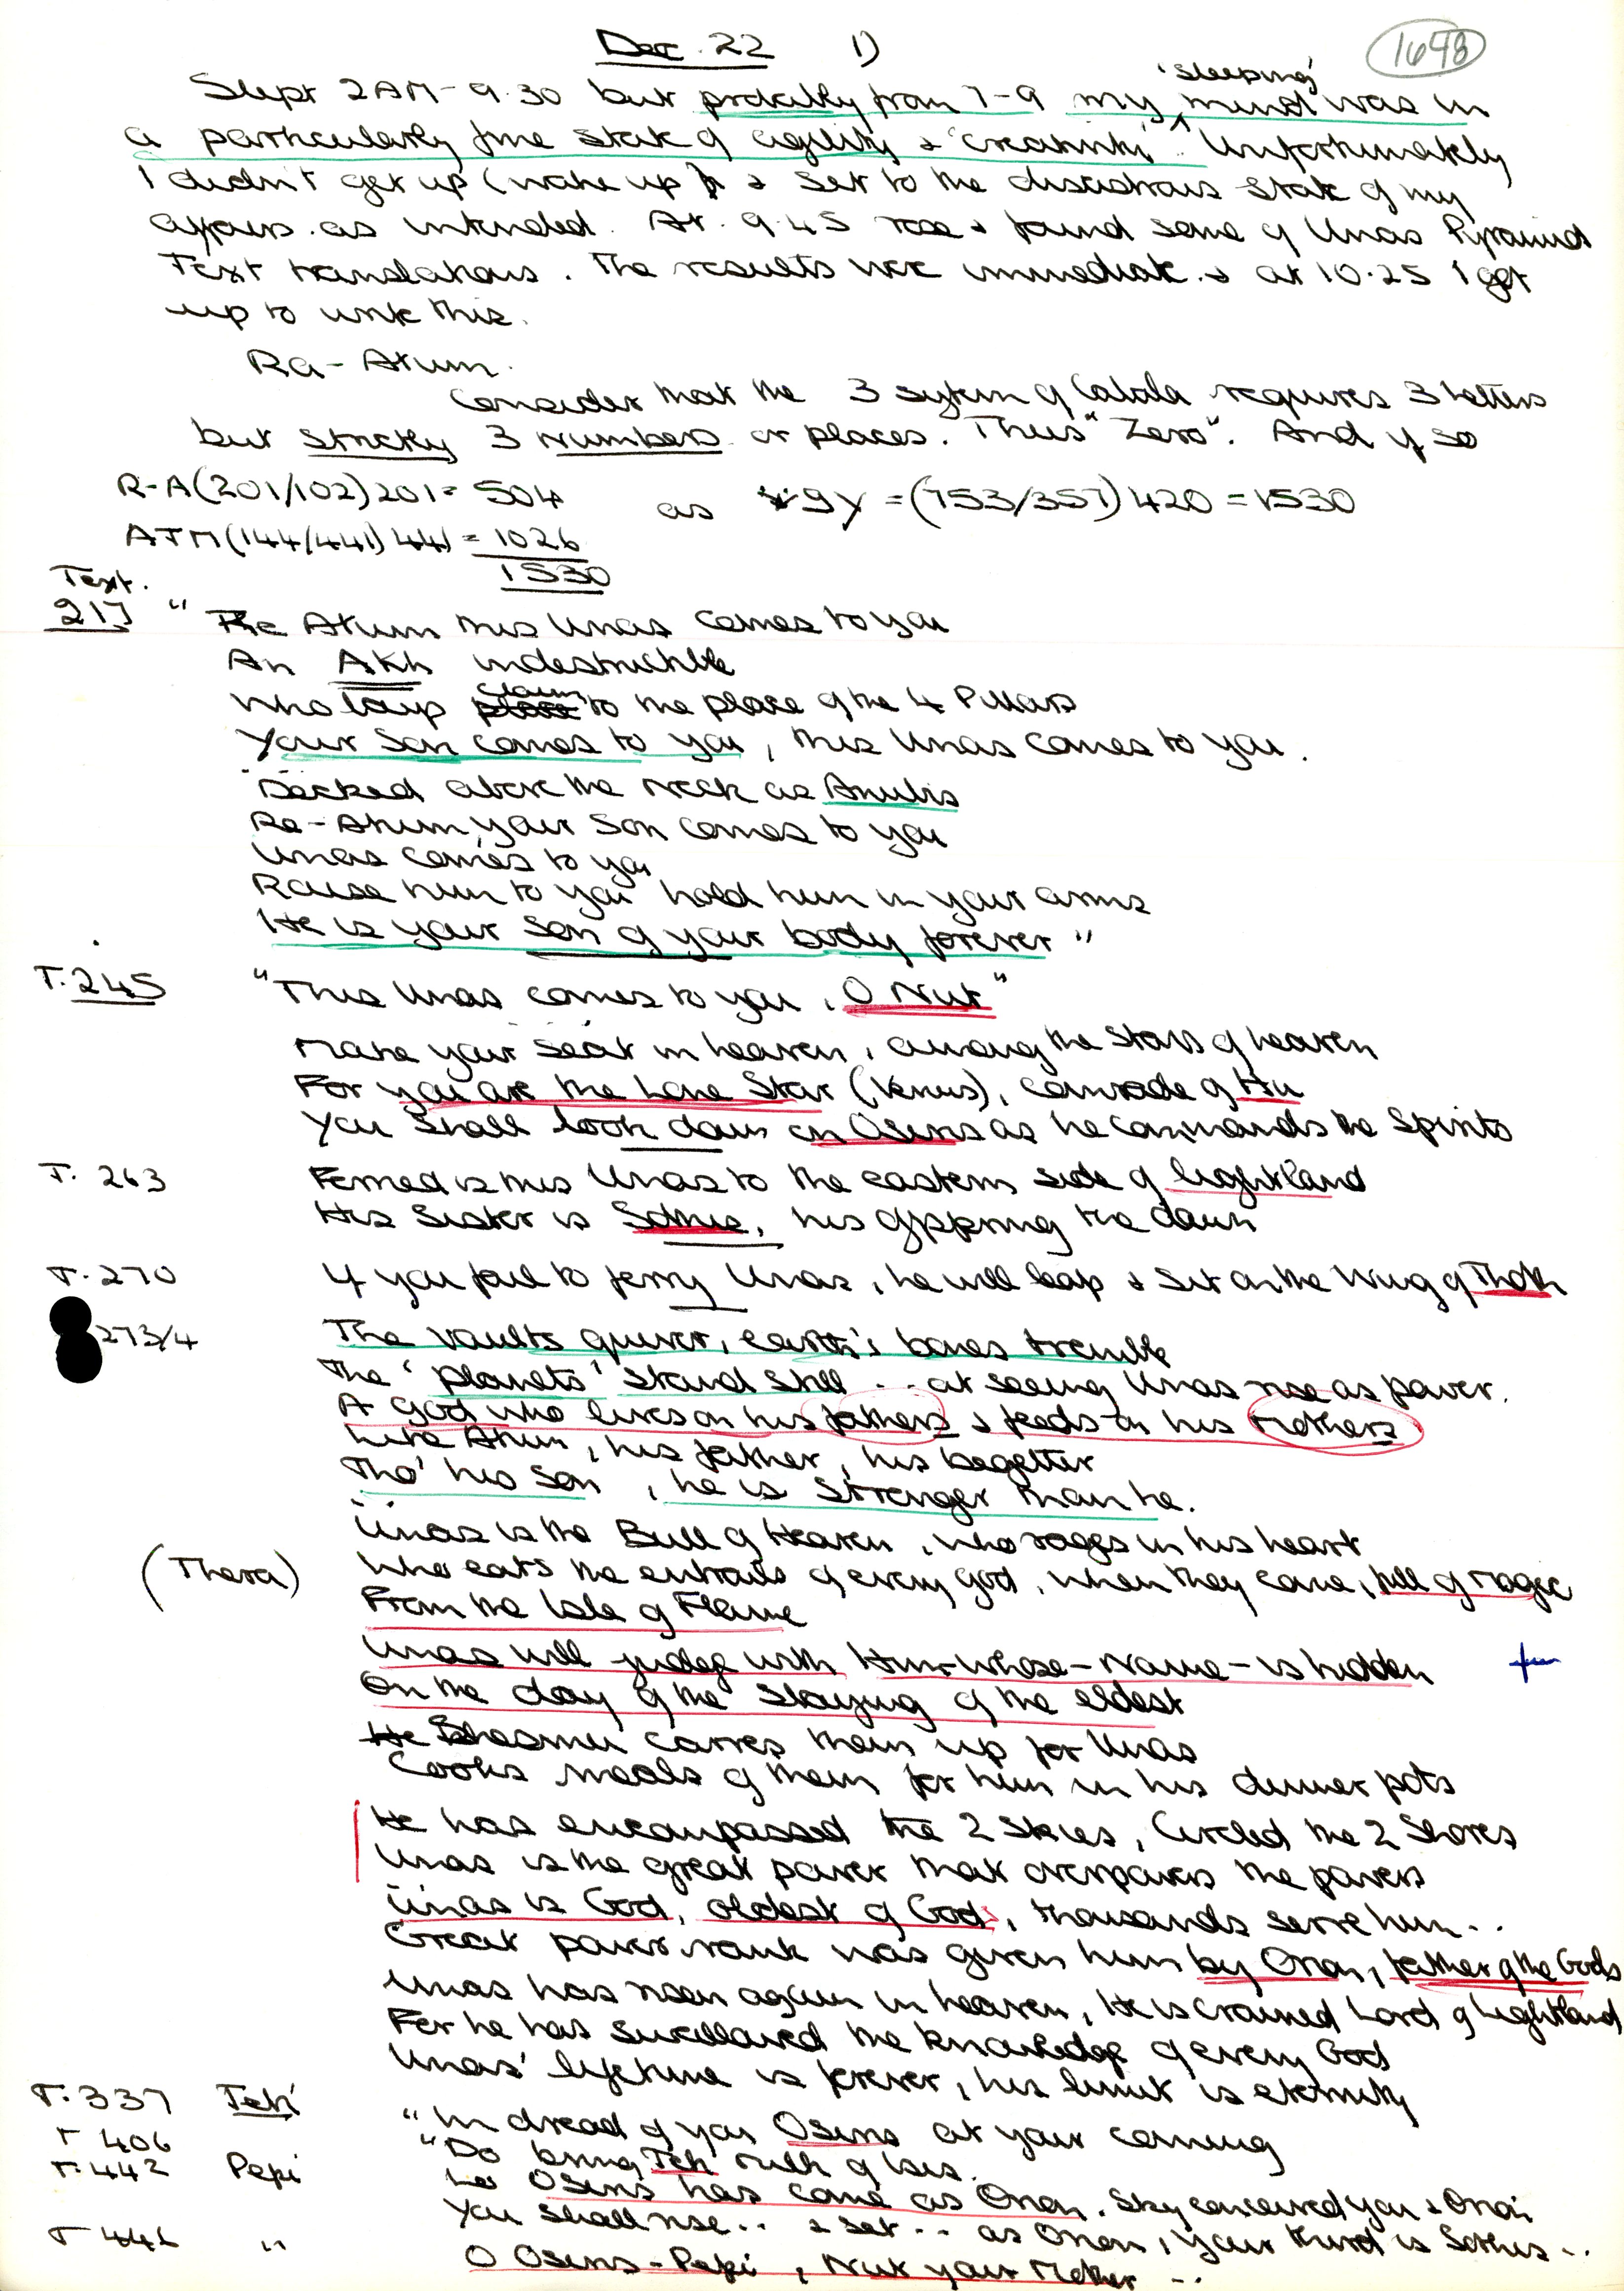 Dec. 22 1) 1698
Slept 2AM-9.30 but probably from 7-9 my 'sleeping' mind was in
a particularly fine state of agility & 'creativity'. Unfortunately
I didn't get up (wake up) & set to the disastrous state of my
affairs as intended. At 9.45 rose & found some of Unas Pyramid
Text translations. The results were immediate & at 10.25 I get
up to write this.
Ra-Atum.
Consider that the 3 system of Cabala requires 3 letters
but strictly 3 numbers or places. Thus "Zero". And if so
R-A(201/102)201 = 504 as 9y = (753/357)420 = 1530
ATM(144/441)441 = 1026
1530
Text.
217 "Re Atum this Unas comes to you
An Akh indestructible
Who lays claim to the place of the 4 Pillars
Your Son comes to you, this Unas comes to you.
Decked above the neck as Anubis
Re-Atum, your Son comes to you
Unas comes to you
Raise him to you hold him in your arms
He is your Son of your body forever"
T.245 "This Unas comes to you, O Nut"
Make your seat in heaven, among the stars of heaven
For you are the Lone Star (Venus), comrade of Hu
You shall look down on Osiris as he commands the Spirits
T. 263 Ferried is this Unas to the eastern side of lightland
His Sister is Sothis, his offspring the dawn
T. 270 If you fail to ferry Unas, he will leap & sit on the Wing of Thoth
273/4 The vaults quiver, earth's bones tremble
The 'planets' stand still .. at seeing Unas rise as power.
A God who lives on his fathers & feeds on his Mothers
Like Atum, his father, his begetter
Tho' his Son, he is Stronger than he.
Unas is the Bull of Heaven, who rages in his heart
(Thera) Who eats the entrails of every god, when they come, full of magic
From the Isle of Flame
Unas will judge with Him-Whose-Name-is hidden
On the day of the Slaying of the eldest
He Shesmu carves them up for Unas
Cooks meals of them for him in his dinner pots
He has encompassed the 2 Skies, Circled the 2 Shores
Unas is the great power that overpowers the powers
Unas is God, oldest of Gods, thousands serve him..
Great power rank was given him by Orion, father of the Gods
Unas has risen again in heaven, He is Crowned Lord of Lightland
For he has Swallowed the Knowledge of every God
Unas' lifetime is forever, his limit is eternity
T.337 Teti "In dread of you Osiris at your coming
T 406 "Do bring Teti milk of Isis.
T.442 Pepi Lo Osiris has come as Orion. Sky conceived you & Orion
You shall rise.. & set.. as Orion, your third is Sothis..
T 446 " O Osiris-Pepi, Nut your Mother ..